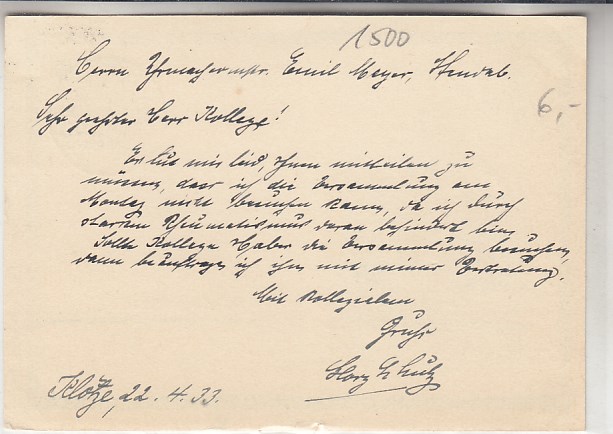 1500
Herrn Uhrmachermstr. Emil Meyer,
6,-
Sehr geehrter Herr Kollege!
Es tut mir leid, Ihnen mitteilen zu
müssen, dass ich die Versammlung am
Montag nicht besuchen kann, da ich durch
starken Rheumatismus daran behindert bin.
Sollte Kollege Haber die Versammlung besuchen,
dann beauftrage ich ihn mit meiner Vertretung.
Mit kollegialem
Gruß
Klötze, 22. 4. 33.